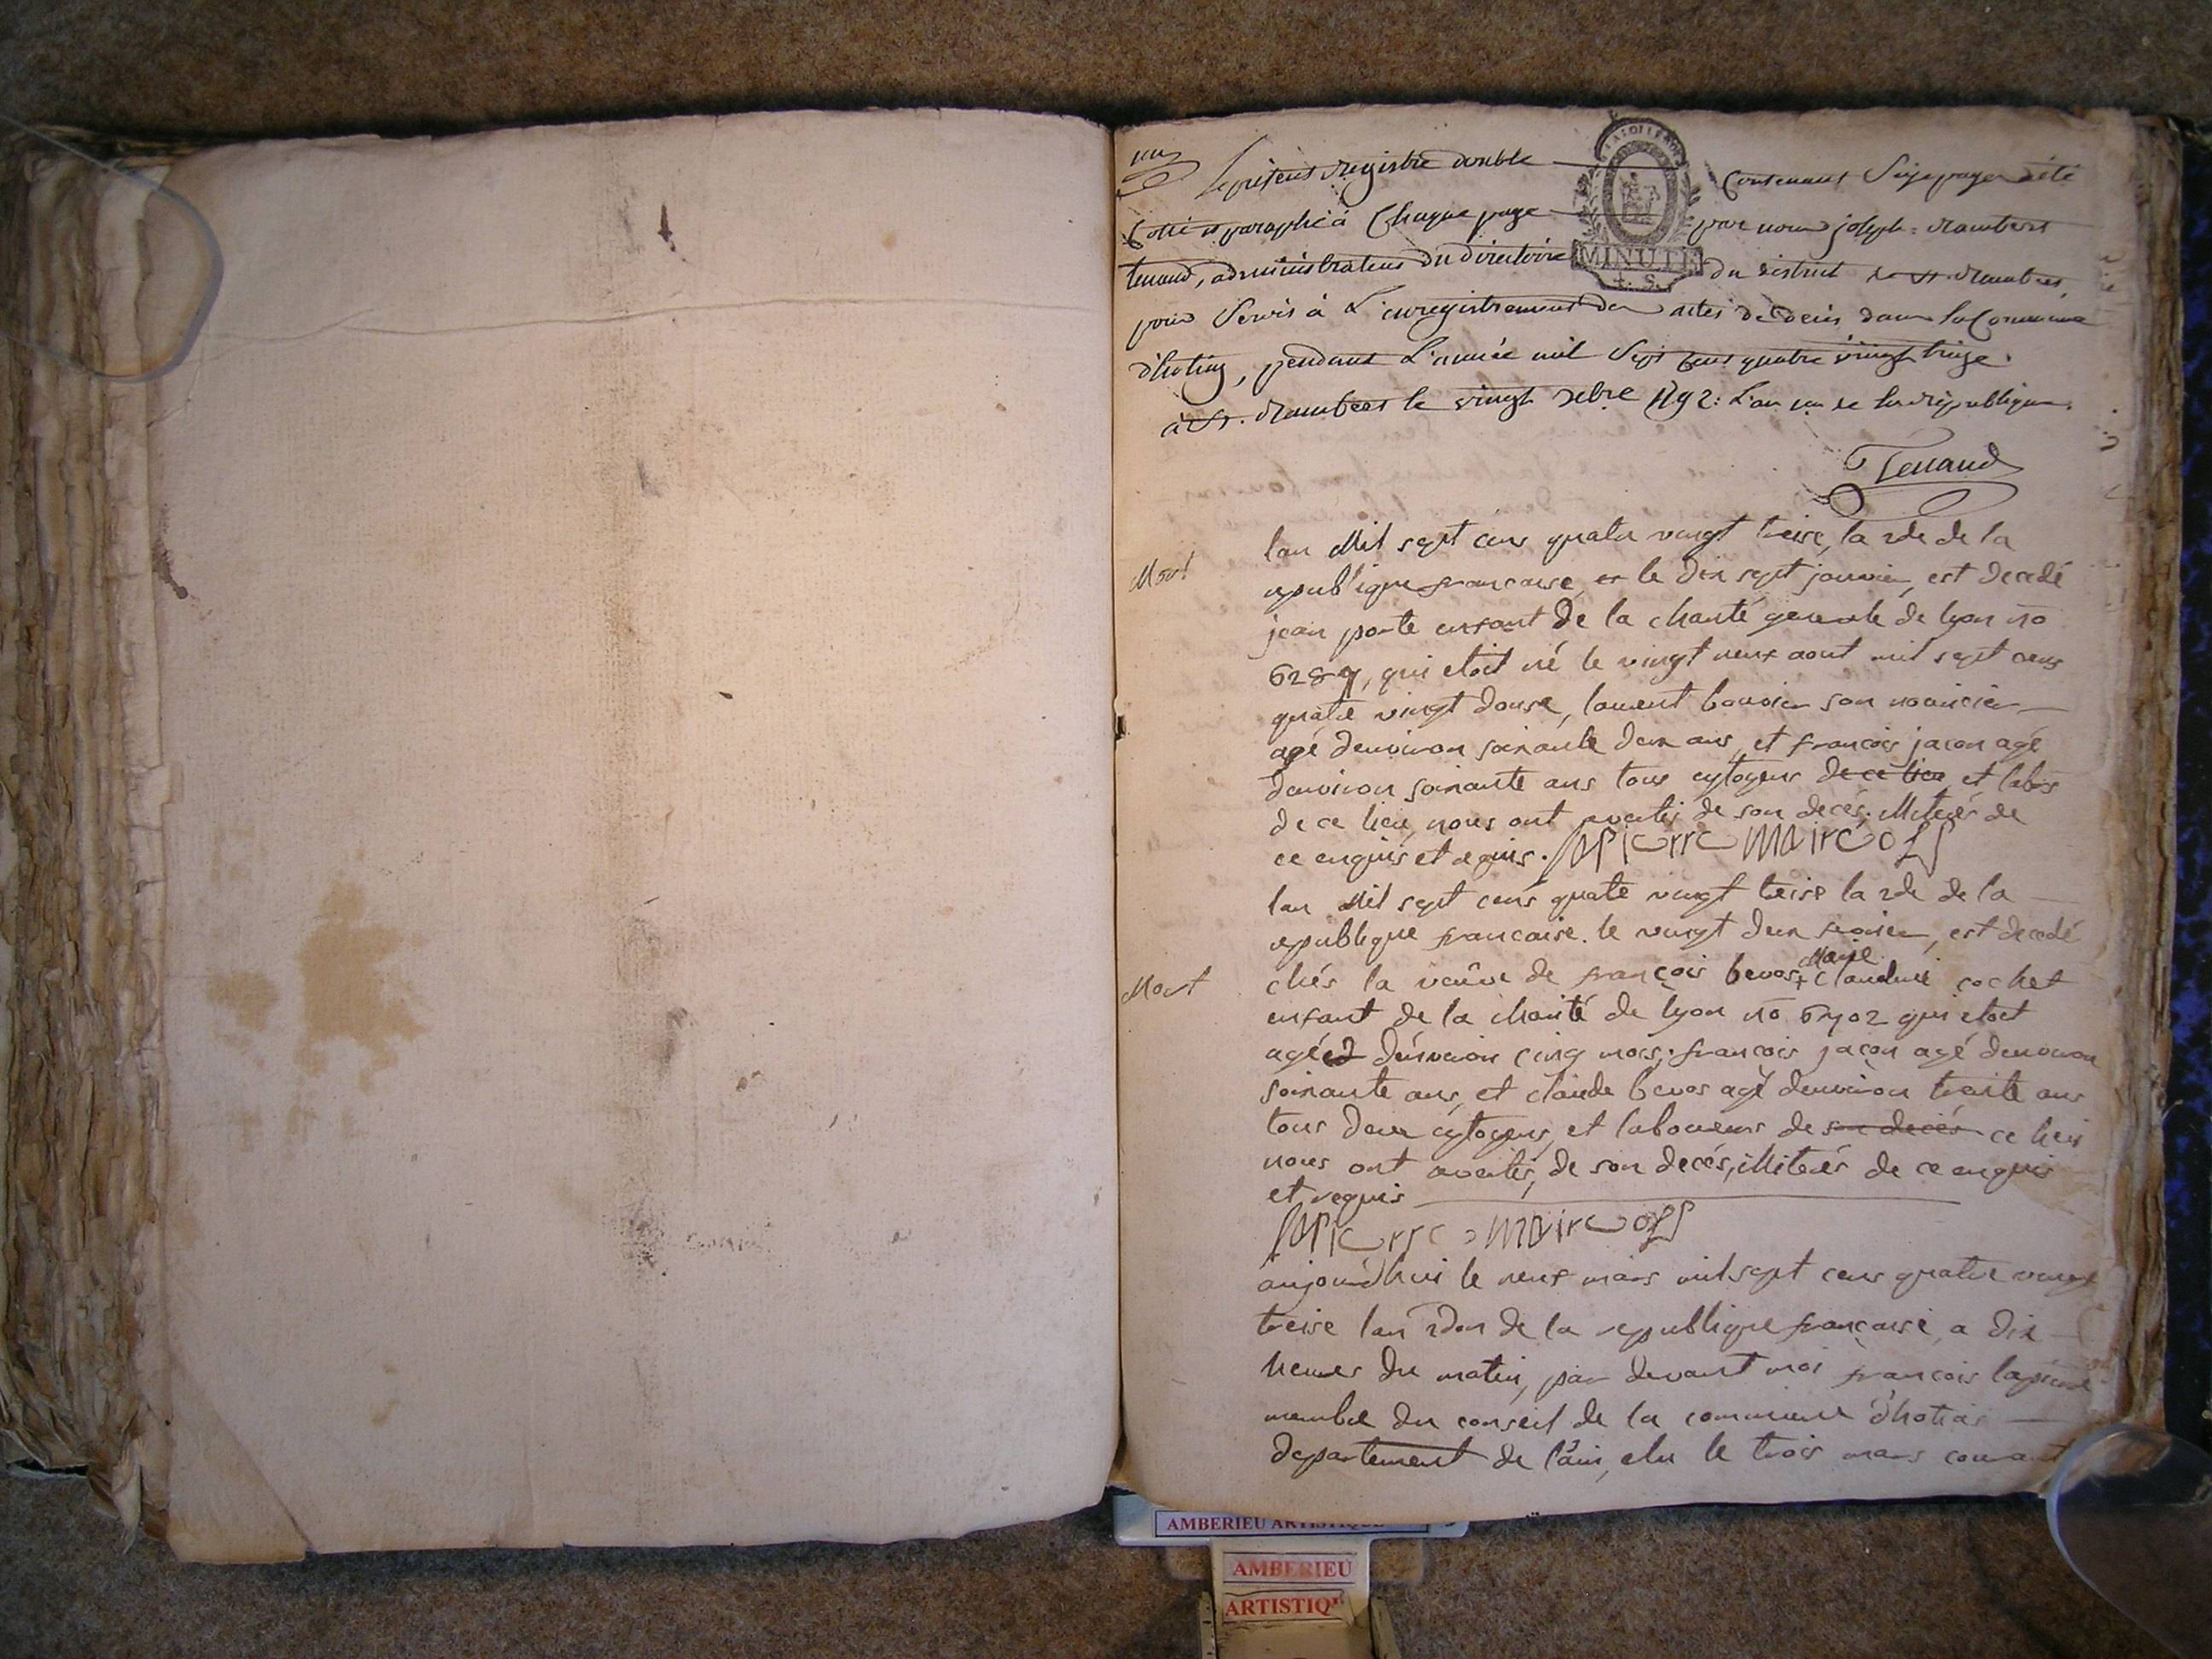 un
Le présent registre double contenant Seize pages a été
Cotté et paraphé à Chaque page par nous joseph-rambert
tenand, administrateur du directoire du district de St. rambert,
MINUTE
4. S.
pour Servir à L'enregistrement des actes de décès dans la Commune
d'hotiaz, pendant L'année mil Sept cent quatre vingt treize.
à St. rambert le vingt xbre 1792: L'an un de la république.
Tenand
Mort
lan Mil sept cens quatre vingt treise, la 2de de la
republique francaise, et le dix sept janvier, est decedé
jean porte enfant de la charité generale de lyon no
6287, qui etoit né le vingt neuf aout mil sept cens
quatre vingt douse, laurent bouvier son nouricier
agé denviron soixante deux ans, et francois jacon agé
denviron soixante ans tous cytoyens de ce lieu et labrs
de ce lieu, nous ont avertis de son decés, illiterés de
ce enquis et requis. lapierre maire off
lan Mil sept cens quatre vingt treise la 2de de la
republique francaise. le vingt deux fevrier, est decedé
Mort
chés la veuve de françois bevos + Marie claudine cochet
enfant de la charité de lyon no 6702 qui etoit
agée d'environ cinq mois, francois jacon agé denviron
soixante ans, et claude bevos agé denviron trente ans
tous deux cytoyens, et laboureurs de son decés ce lieu
nous ont avertis, de son decés, illiterés de ce enquis
et requis
lapierre maire off
aujourdhui le neuf mars mil sept cens quatre vingt
treise lan 2don de la republique francaise, a dix
heures du matin, par devant moi francois lapierre
membre du conseil de la commune d'hotias
departement de l'ain, elu le trois mars courant
AMBERIEU ARTISTIQUE
AMBERIEU
ARTISTIQ